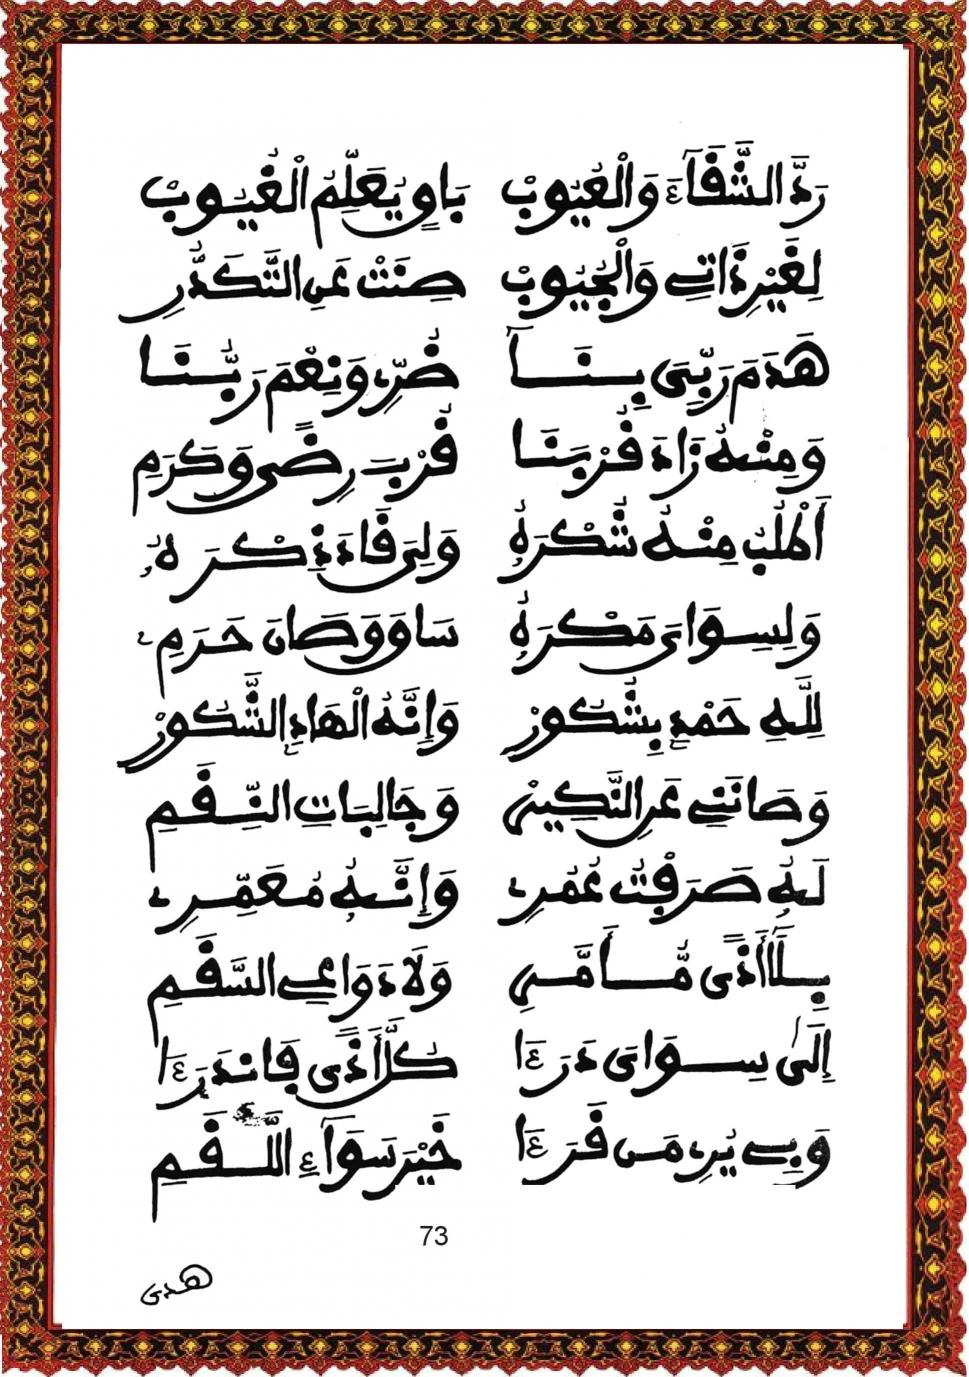 رَدَّ الشَّقَآءَ وَالْعُيُوبْ بَاقٍ يُعَلِّمُ الْغُيُوبْ
لِغَيْرِ ذَاتِي وَالْجُيُوبْ صِنَتْ عَنِ التَّكَدُّرِ
هَدَمَ رَبِّي بِنَآ ضُرِّي وَنِعْمَ رَبُّنَا
وَمِنْهُ زَادَ قُرْبَنَا قُرْبَ رِضًى وَكَرَمِ
أَطْلُبُ مِنْهُ شُكْرَهُ وَلِيَ قَادَ ذِكْرَهُ
وَلِسِوَايَ مَكْرَهُ سَاقَ وَصَانَ حَرَمِي
لِلَّهِ حَمْدِي بِشُكُورْ وَإِنَّهُ الْهَادِي الشَّكُورْ
وَصَانَنِي عَنِ وَجَالِبَاتِ النِّقَمِ
لَهُ صَرَفْتُ عُمُرِي وَإِنَّهُ مُعَمِّرِي
بِلَا أَذًى وَلَا دَوَاعِي السَّقَمِ
إِلَى سِوَايَ دَرَءَا كُلَّ أَذًى فَانْدَرَءَا
وَبِي يُرِي مَن قَرَءَا خَيْرَ سَوَآءِ اللَّقَمِ
73
هدى